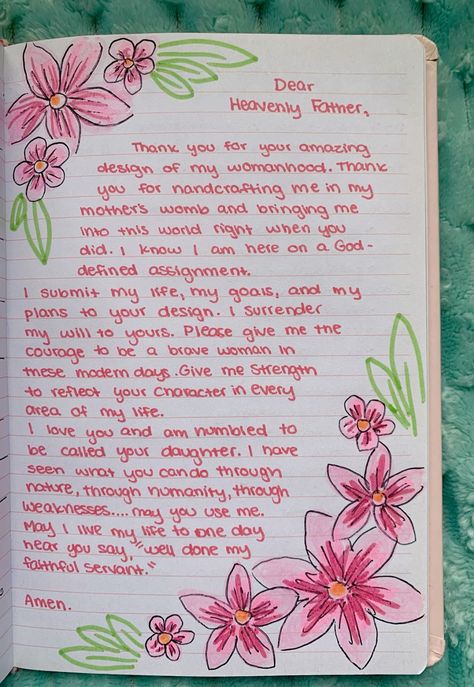 Dear
Heavenly Father,
Thank you for your amazing
design of my womanhood. Thank
you for handcrafting me in my
mother's womb and bringing me
into this world right when you
did. I know I am here on a God-
defined assignment.
I submit my life, my goals, and my
plans to your design. I surrender
my will to yours. Please give me the
courage to be a brave woman in
these modern days. Give me strength
to reflect your character in every
area of my life.
I love you and am humbled to
be called your daughter. I have
seen what you can do through
nature, through humanity, through
weaknesses.... may you use me.
May I live my life to one day
hear you say, "well done my
faithful servant."
Amen.